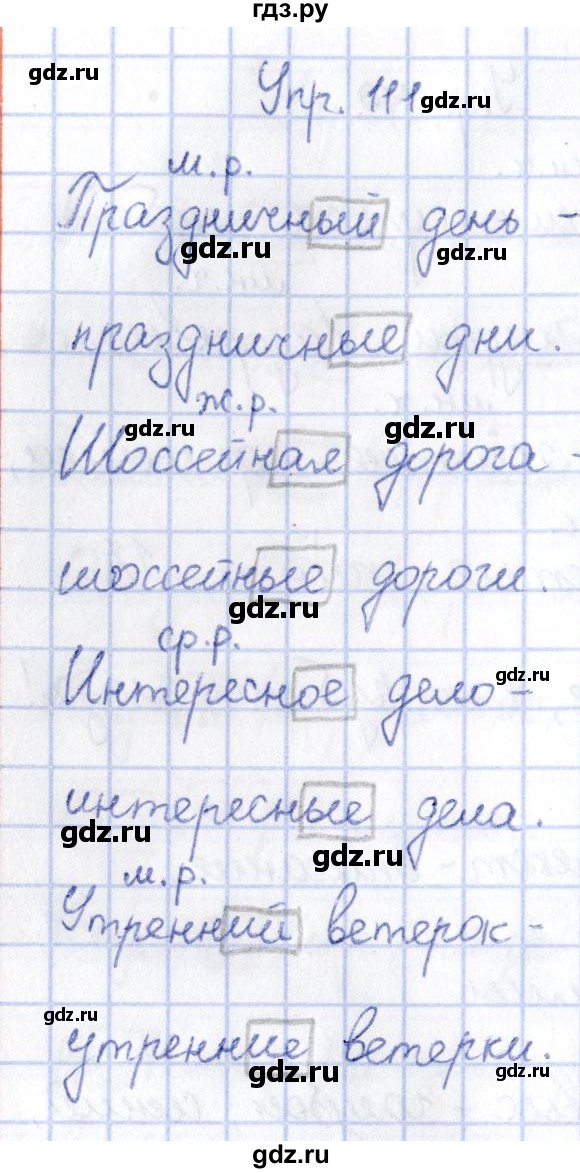 гдз.ру
gdz.ru
Упр. 111
gdz.ru
м.р.
Праздничный день -
gdz.ru
gdz.ru
праздничные дни.
ж.р.
gdz.ru
gdz.ru
Шоссейная дорога -
шоссейные дороги.
gdz.ru
ср.р.
gdz.ru
Интересное дело -
интересные дела.
gdz.ru
gdz.ru
м.р.
Утренний ветерок -
gdz.ru
утренние ветерки.
gdz.ru
gdz.ru
gdz.ru